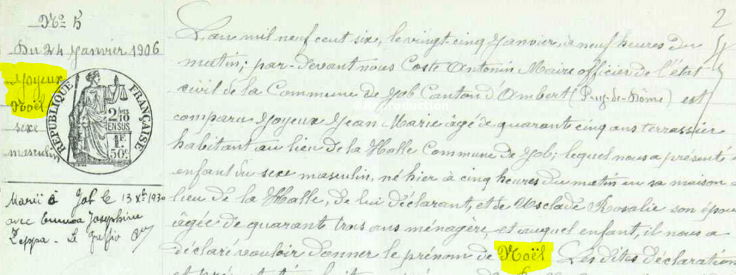 No 5
Du 24 Janvier 1906
Joyeux
Noël
sexe
masculin
RÉPUBLIQUE FRANÇAISE
Marié à Job le 13 Xbre 1930
avec Emma Joséphine
Le Greffier
2
L'an mil neuf cent six, le vingt cinq Janvier, à neuf heures du
matin; par-devant nous Coste Antonin, Maire officier de l'état
civil de la Commune de Job Canton d'Ambert (Puy-de-Dôme) est
comparu Joyeux Jean-Marie âgé de quarante cinq ans terrassier
habitant au lieu de la Halle Commune de Job; lequel nous a présenté
enfant du sexe masculin, né hier à cinq heures du matin en sa maison
lieu de la Halle, de lui déclarant, et de Esclade Rosalie son épou
âgée de quarante trois ans ménagère, et auquel enfant, il nous a
déclaré vouloir donner le prénom de Noël. Les dites déclaration